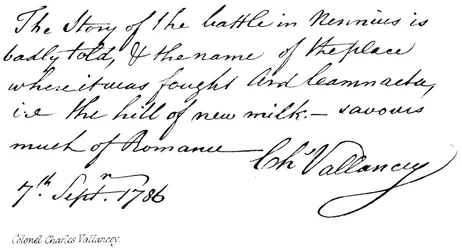 The Story of the battle in Nennius is
badly told, & the name of the place
where it was fought Ard leamnacta,
i.e the hill of new milk.— savours
much of Romance — Chs Vallancey
7th Septr. 1786
Colonel Charles Vallancey.